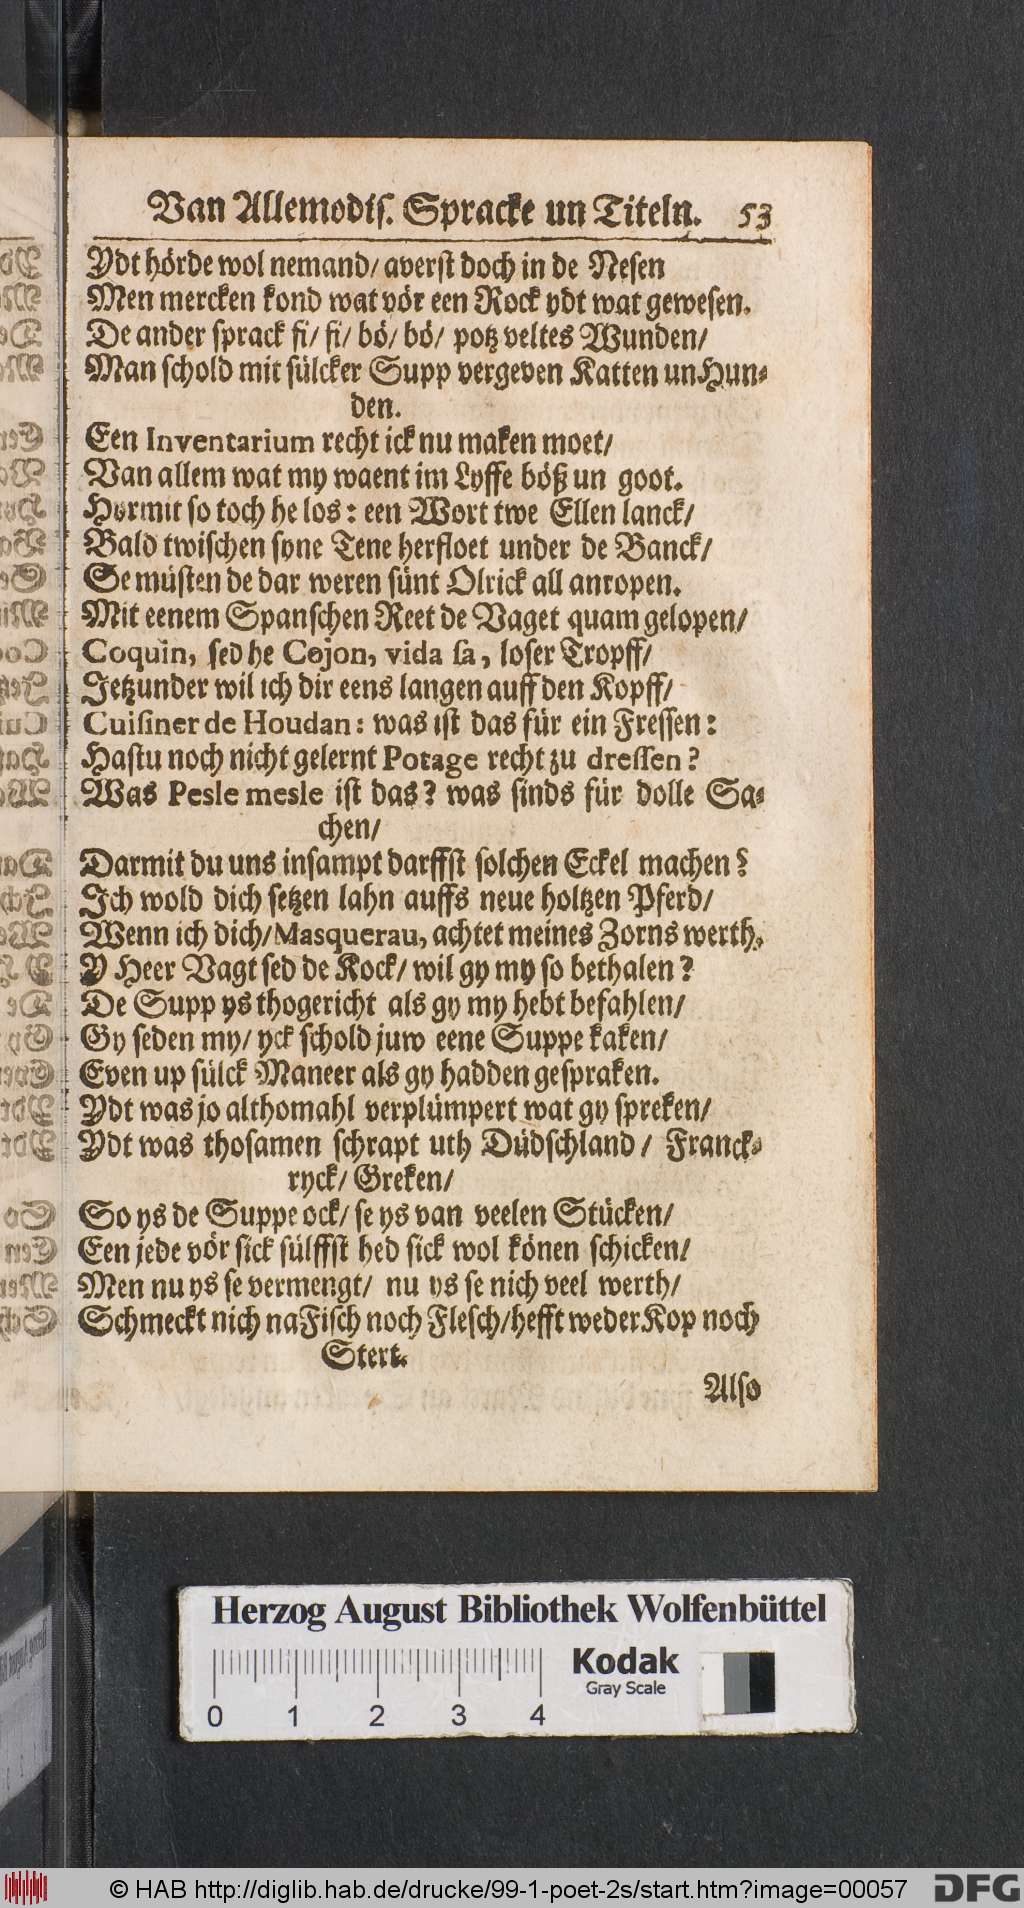 Van Allemodis. Spracke un Titeln. 53
Ydt hörde wol nemand/ averst doch in de Nesen
Men mercken kond wat vör een Rock ydt wat gewesen.
De ander sprack fi/ fi/ bö/ bö/ potz veltes Wunden/
Man schold mit sülcker Supp vergeven Katten un Hun-
den.
Een Inventarium recht ick nu maken moet/
Van allem wat my waent im Lyffe böß un goot.
Hürmit so toch he los: een Wort twe Ellen lanck/
Bald twischen syne Tene herfloet under de Banck/
Se müsten de dar weren sünt Olrick all anropen.
Mit eenem Spanschen Reet de Vaget quam gelopen/
Coquin, sed he Cojon, vida sa, loser Tropff/
Jetzunder wil ich dir eens langen auff den Kopff/
Cuisiner de Houdan: was ist das für ein Fressen:
Hastu noch nicht gelernt Potage recht zu dressen?
Was Pesle mesle ist das? was sinds für dolle Sa-
chen/
Darmit du uns insampt darffst solchen Eckel machen?
Ich wold dich setzen lahn auffs neue holtzen Pferd/
Wenn ich dich/ Masquerau, achtet meines Zorns werth.
Y Heer Vagt sed de Kock/ wil gy my so bethalen?
De Supp ys thogericht als gy my hebt befahlen/
Gy seden my/ yck schold juw eene Suppe kaken/
Even up sülck Maneer als gy hadden gespraken.
Ydt was jo althomahl verplümpert wat gy spreken/
Ydt was thosamen schrapt uth Düdschland/ Franck-
ryck/ Greken/
So ys de Suppe ock/ se ys van veelen Stücken/
Een jede vör sick sülffst hed sick wol könen schicken/
Men nu ys se vermengt/ nu ys se nich veel werth/
Schmeckt nich na Fisch noch Flesch/ hefft weder Kop noch
Stert.
Also
Herzog August Bibliothek Wolfenbüttel
Kodak
Gray Scale
0 1 2 3 4
© HAB http://diglib.hab.de/drucke/99-1-poet-2s/start.htm?image=00057
DFG